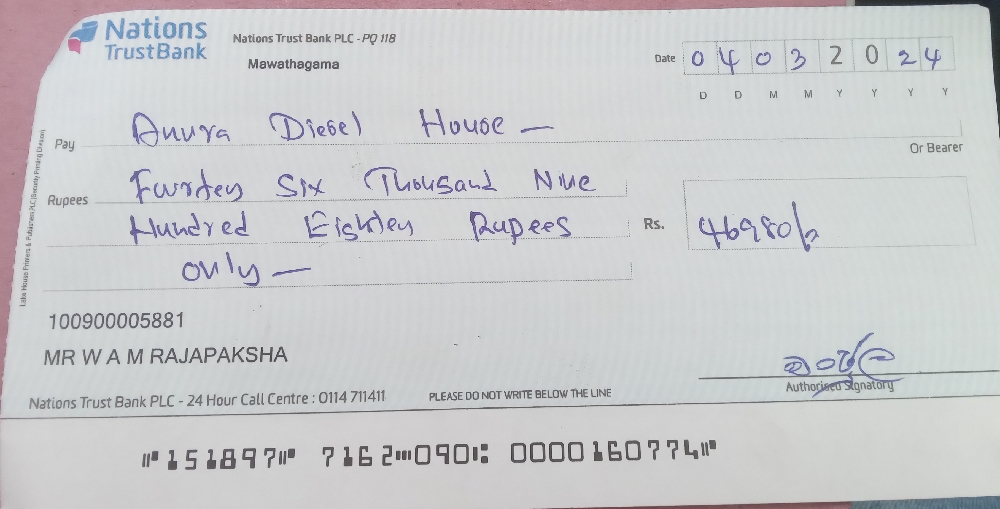 Nations
TrustBank
Nations Trust Bank PLC - PQ 118
Mawathagama
Date 04032024
D D M M Y Y Y Y
Pay Anura Diesel House —
Or Bearer
Rupees Fourtey Six Thousand Nine
Hundred Eightey Rupees
only —
Rs. 46980/=
Lake House Printers & Publishers PLC (Security Printing Division)
100900005881
MR W A M RAJAPAKSHA
Authorised Signatory
Nations Trust Bank PLC - 24 Hour Call Centre : 0114 711411
PLEASE DO NOT WRITE BELOW THE LINE
⑈151897⑈ 7162⑉090⑆ 0000160774⑈